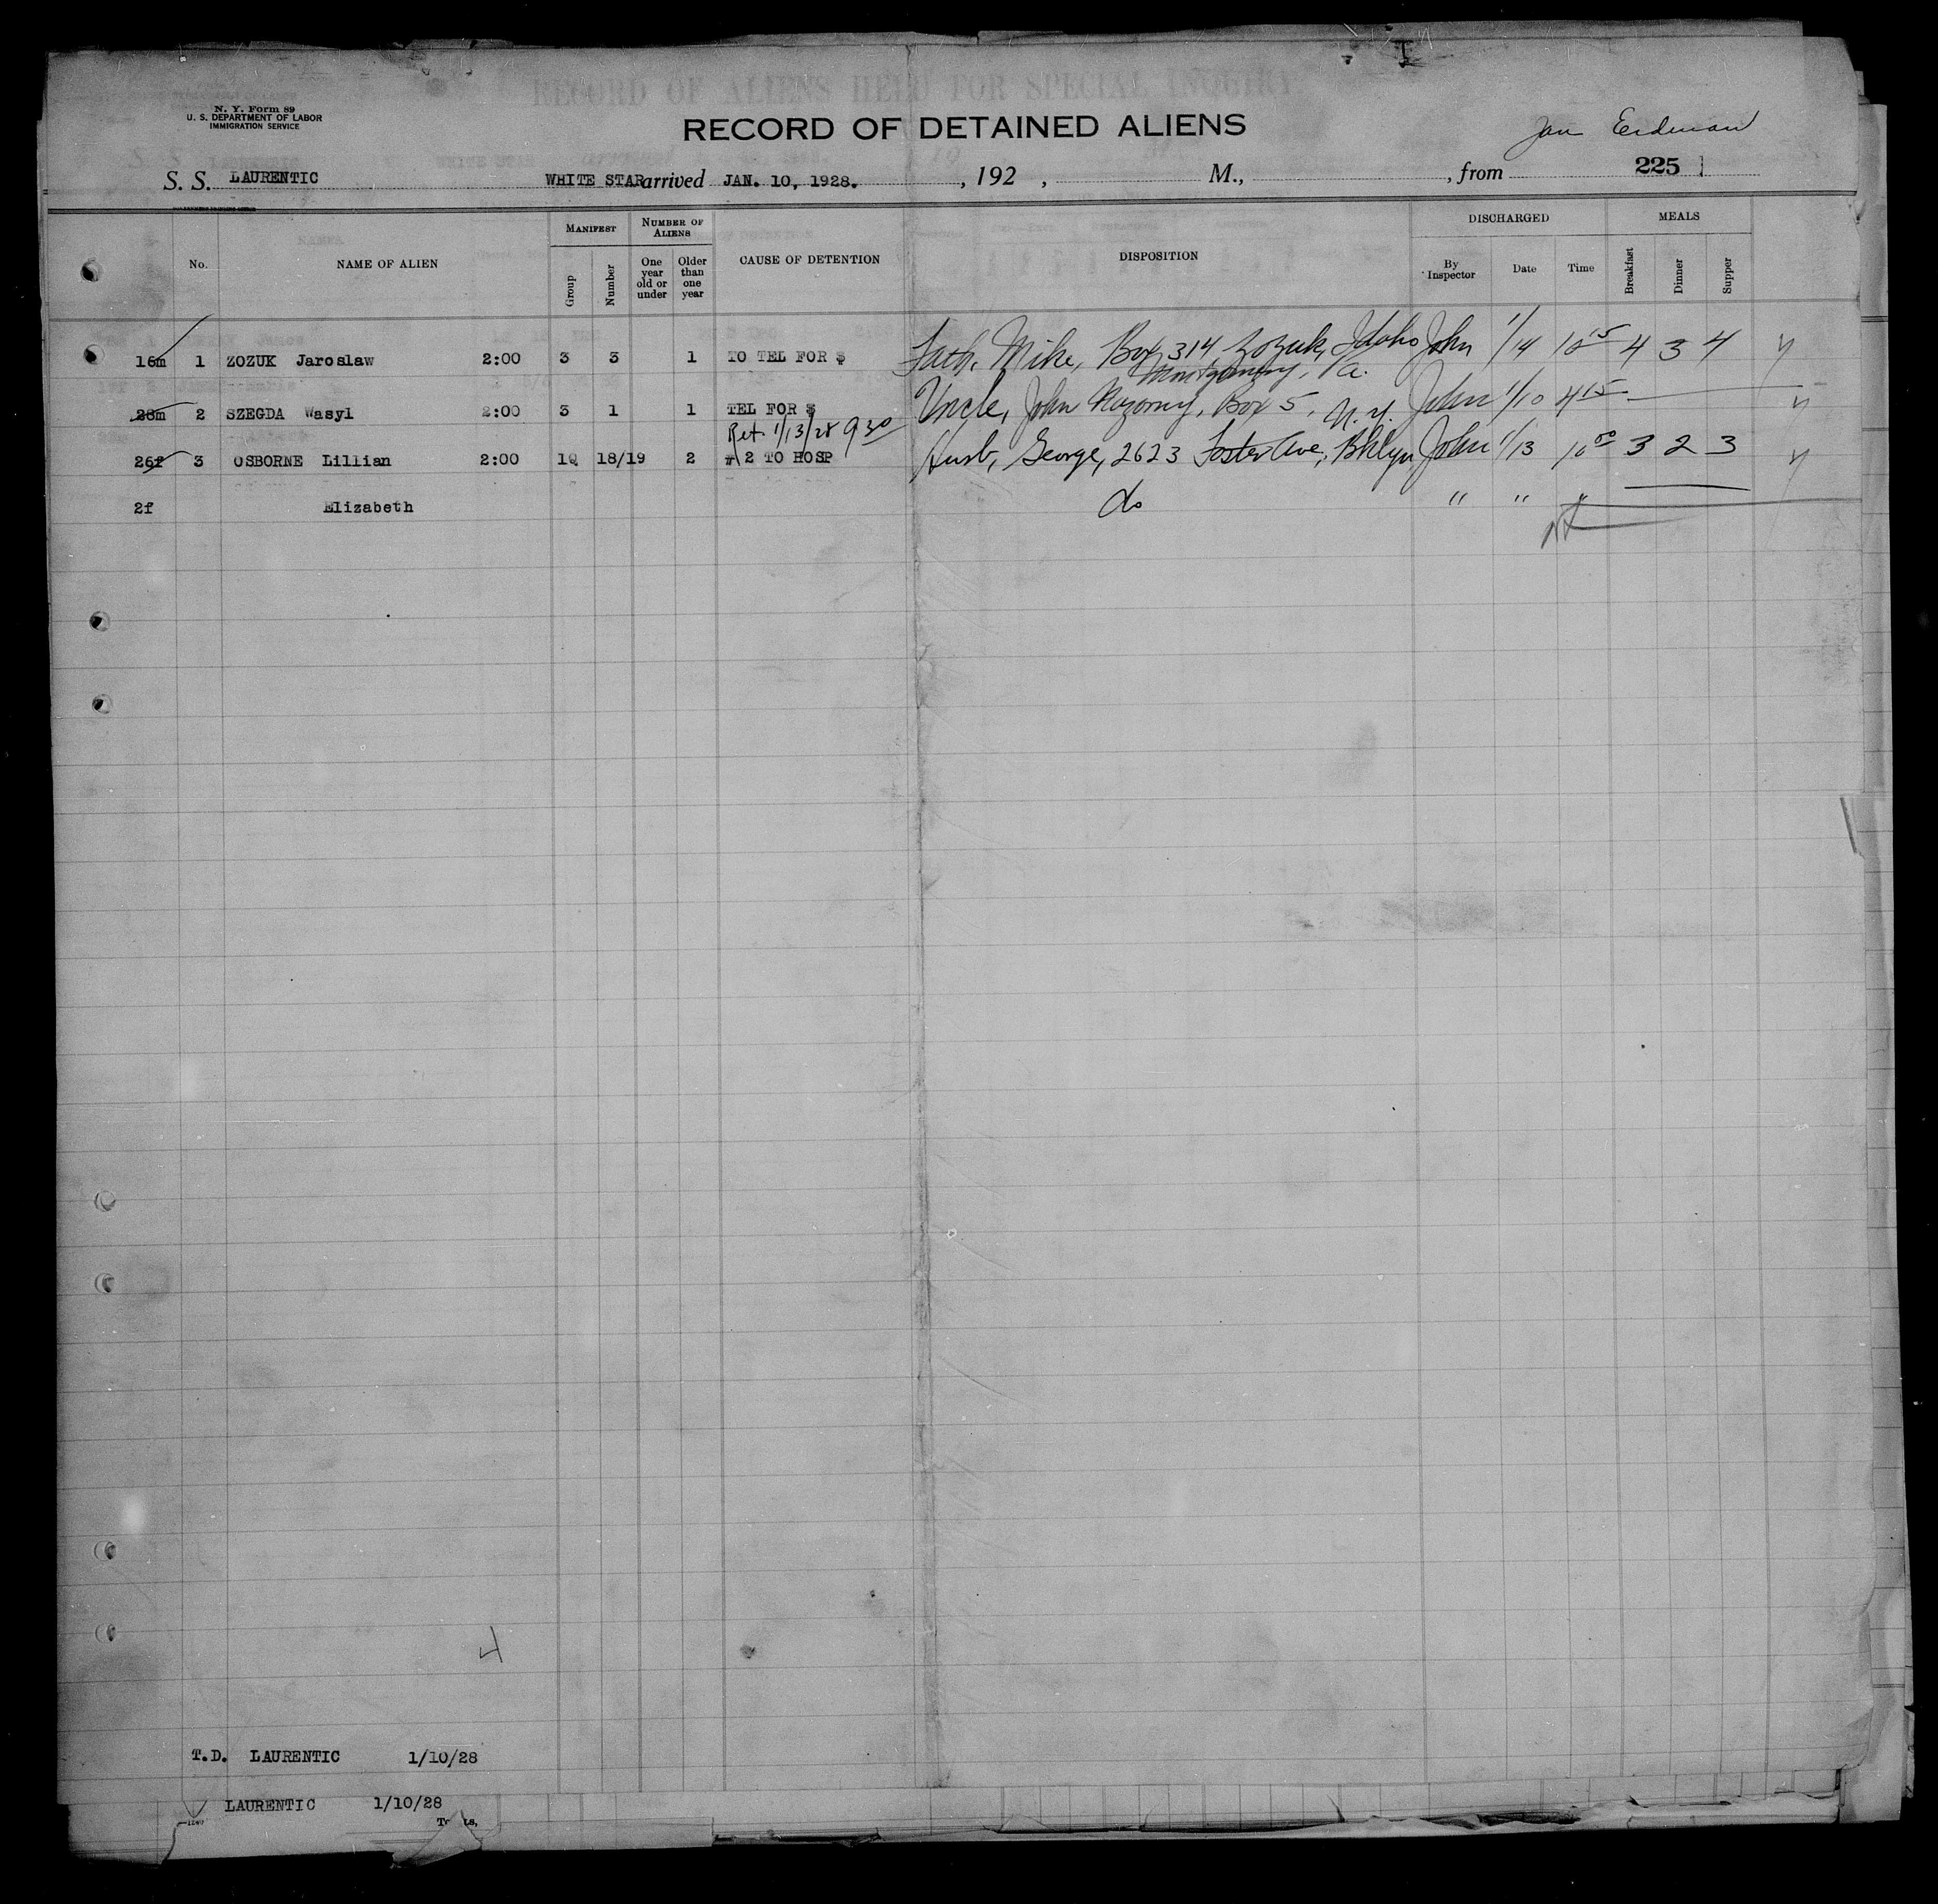 RECORD OF ALIENS HELD FOR SPECIAL INQUIRY
N. Y. Form 89
U. S. DEPARTMENT OF LABOR
IMMIGRATION SERVICE
RECORD OF DETAINED ALIENS
Jan Erdman
S. S. LAURENTIC WHITE STAR arrived JAN. 10, 1928. , 192 , M., , from 225
No. NAME OF ALIEN MANIFEST Group Number NUMBER OF ALIENS One year old or under Older than one year CAUSE OF DETENTION DISPOSITION DISCHARGED By Inspector Date Time MEALS Breakfast Dinner Supper
16m 1 ZOZUK Jaroslaw 2:00 3 3 1 TO TEL FOR $ Fath, Mike, Box 314 Zozuk, Idaho John 1/14 10 15 4 3 4
Montgomery, Pa.
28m 2 SZEGDA Wasyl 2:00 3 1 1 TEL FOR $ Uncle, John Nazorny, Box 5, N.Y. John 1/10 4 15
Ret. 1/13/28 9 30
26f 3 OSBORNE Lillian 2:00 10 18/19 2 # 2 TO HOSP Husb, George, 2623 Foster Ave, Bklyn John 1/13 10 00 3 2 3
2f Elizabeth do " " "
4
T.D. LAURENTIC 1/10/28
LAURENTIC 1/10/28